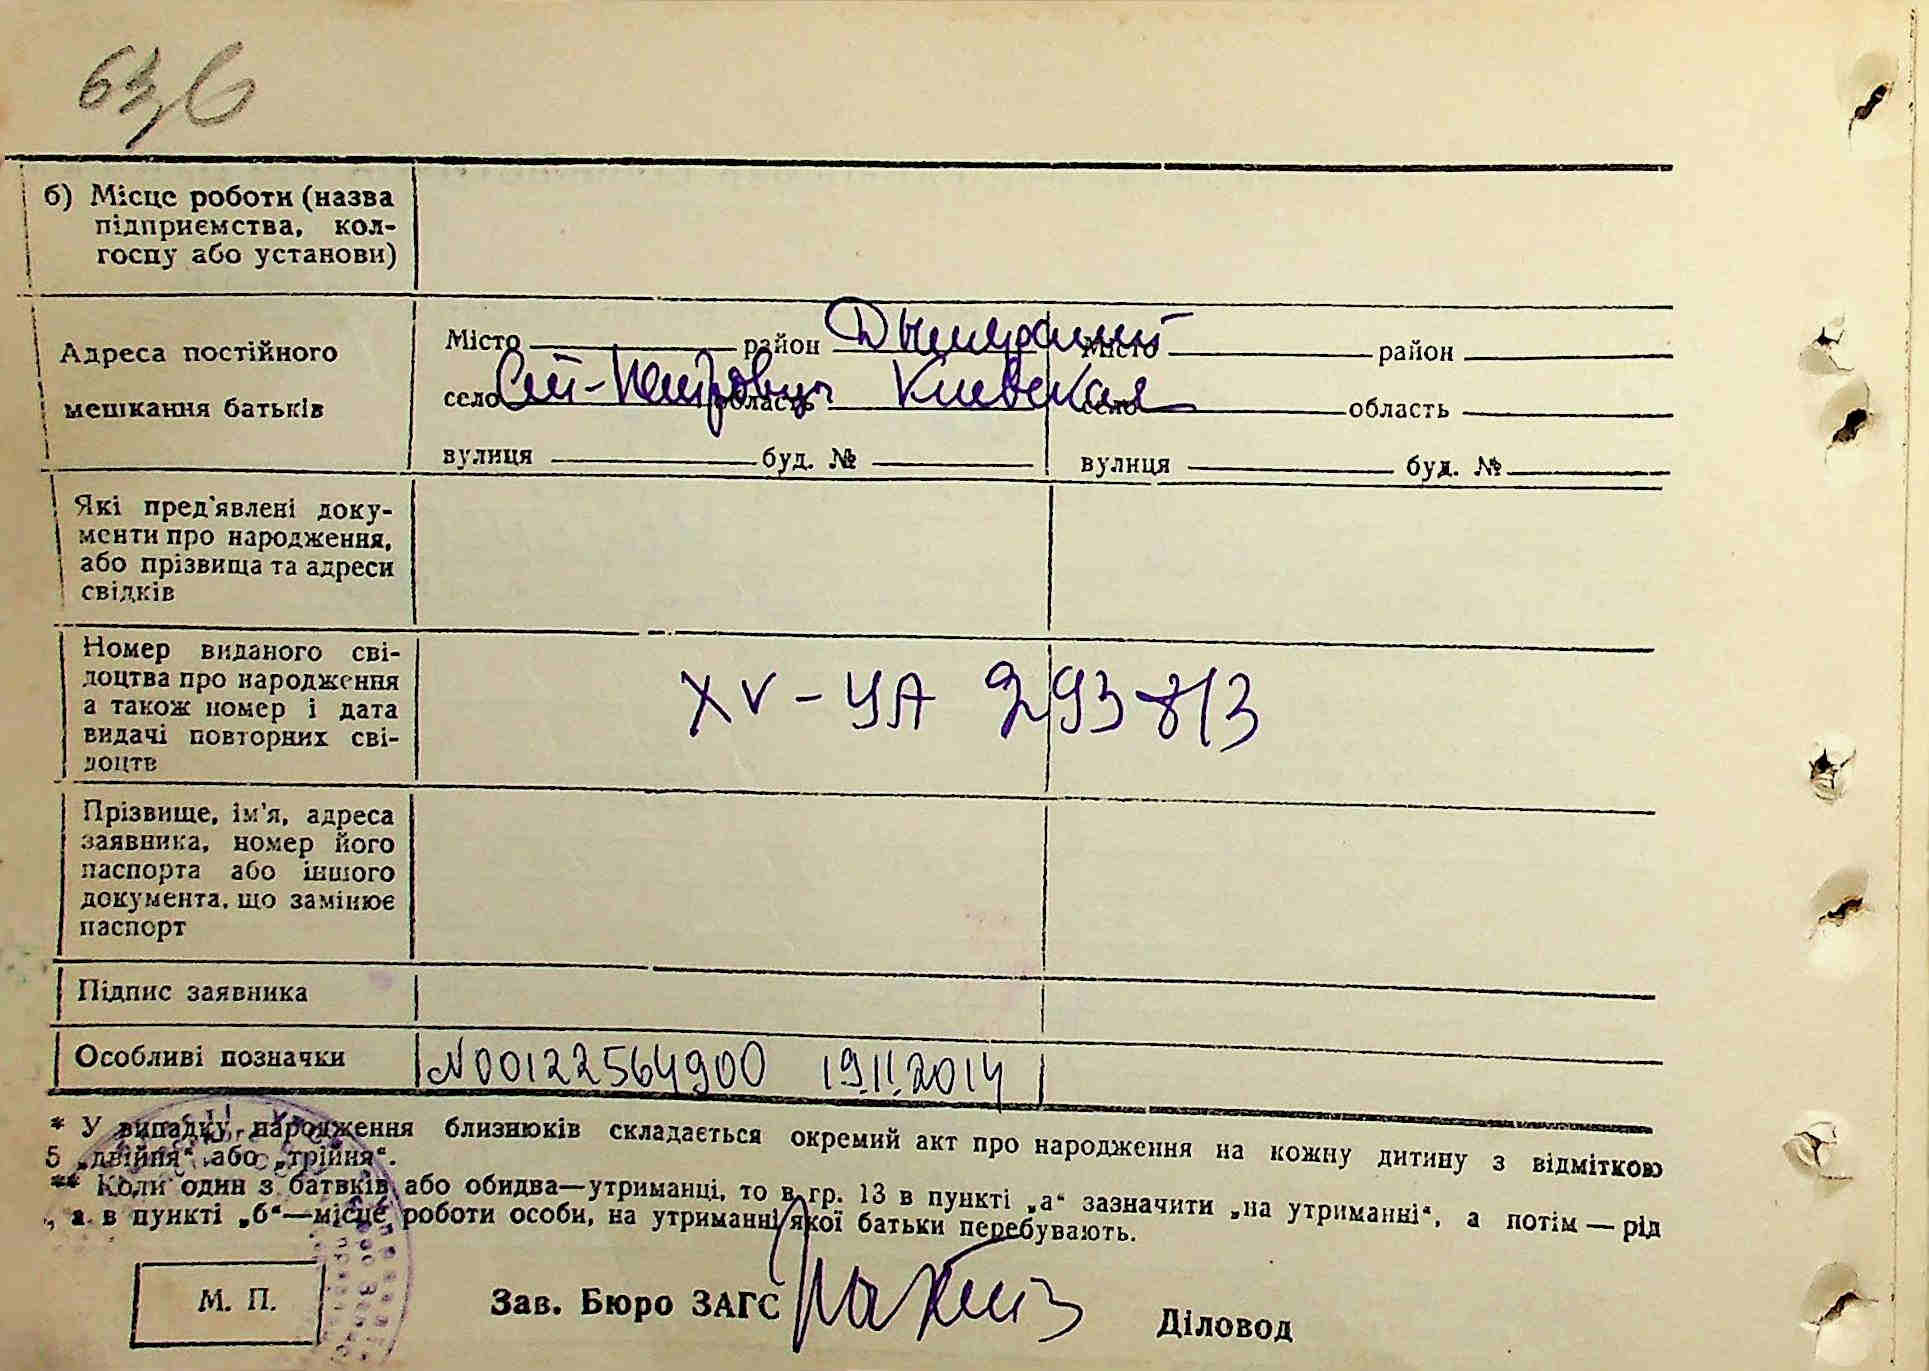 б) Місце роботи (назва
підприємства, кол-
госпу або установи)
Адреса постійного
мешкання батьків
Місто район Дымерский Місто район
село область Киевская село область
вулиця буд. № вулиця буд. №
Які пред'явлені доку-
менти про народження,
або прізвища та адреси
свідків
Номер виданого сві-
доцтва про народження
а також номер і дата
видачі повторних сві-
доцтв
XV-УА 293813
Прізвище, ім'я, адреса
заявника, номер його
паспорта або іншого
документа, що замінює
паспорт
Підпис заявника
Особливі позначки
N00122564900 19.11.2014
* У випадку народження близнюків складається окремий акт про народження на кожну дитину з відміткою
5 „двійня“ або „трійня“.
** Коли один з батьків або обидва—утриманці, то в гр. 13 в пункті „а“ зазначити „на утриманні“, а потім — рід
, а в пункті „б“—місце роботи особи, на утриманні якої батьки перебувають.
М. П.
Зав. Бюро ЗАГС
Діловод